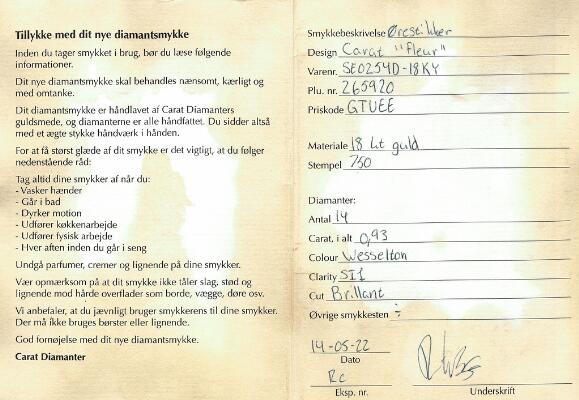 Tillykke med dit nye diamantsmykke
Inden du tager smykket i brug, bør du læse følgende
informationer.
Dit nye diamantsmykke skal behandles nænsomt, kærligt og
med omtanke.
Dit diamantsmykke er håndlavet af Carat Diamanters
guldsmede, og diamanterne er alle håndfattet. Du sidder altså
med et ægte stykke håndværk i hånden.
For at få størst glæde af dit smykke er det vigtigt, at du følger
nedenstående råd:
Tag altid dine smykker af når du:
- Vasker hænder
- Går i bad
- Dyrker motion
- Udfører køkkenarbejde
- Udfører fysisk arbejde
- Hver aften inden du går i seng
Undgå parfumer, cremer og lignende på dine smykker.
Vær opmærksom på at dit smykke ikke tåler slag, stød og
lignende mod hårde overflader som borde, vægge, døre osv.
Vi anbefaler, at du jævnligt bruger smykkerens til dine smykker.
Der må ikke bruges børster eller lignende.
God fornøjelse med dit nye diamantsmykke.
Carat Diamanter
Smykkebeskrivelse Ørestikker
Design Carat "fleur"
Varenr. SE0254D-18KY
Plu. nr. 265920
Priskode GTUEE
Materiale 18 kt guld
Stempel 750
Diamanter:
Antal 14
Carat, i alt 0,93
Colour Wesselton
Clarity SI1
Cut Brillant
Øvrige smykkesten ÷
14-05-22
Dato
Rc
Eksp. nr.
Underskrift